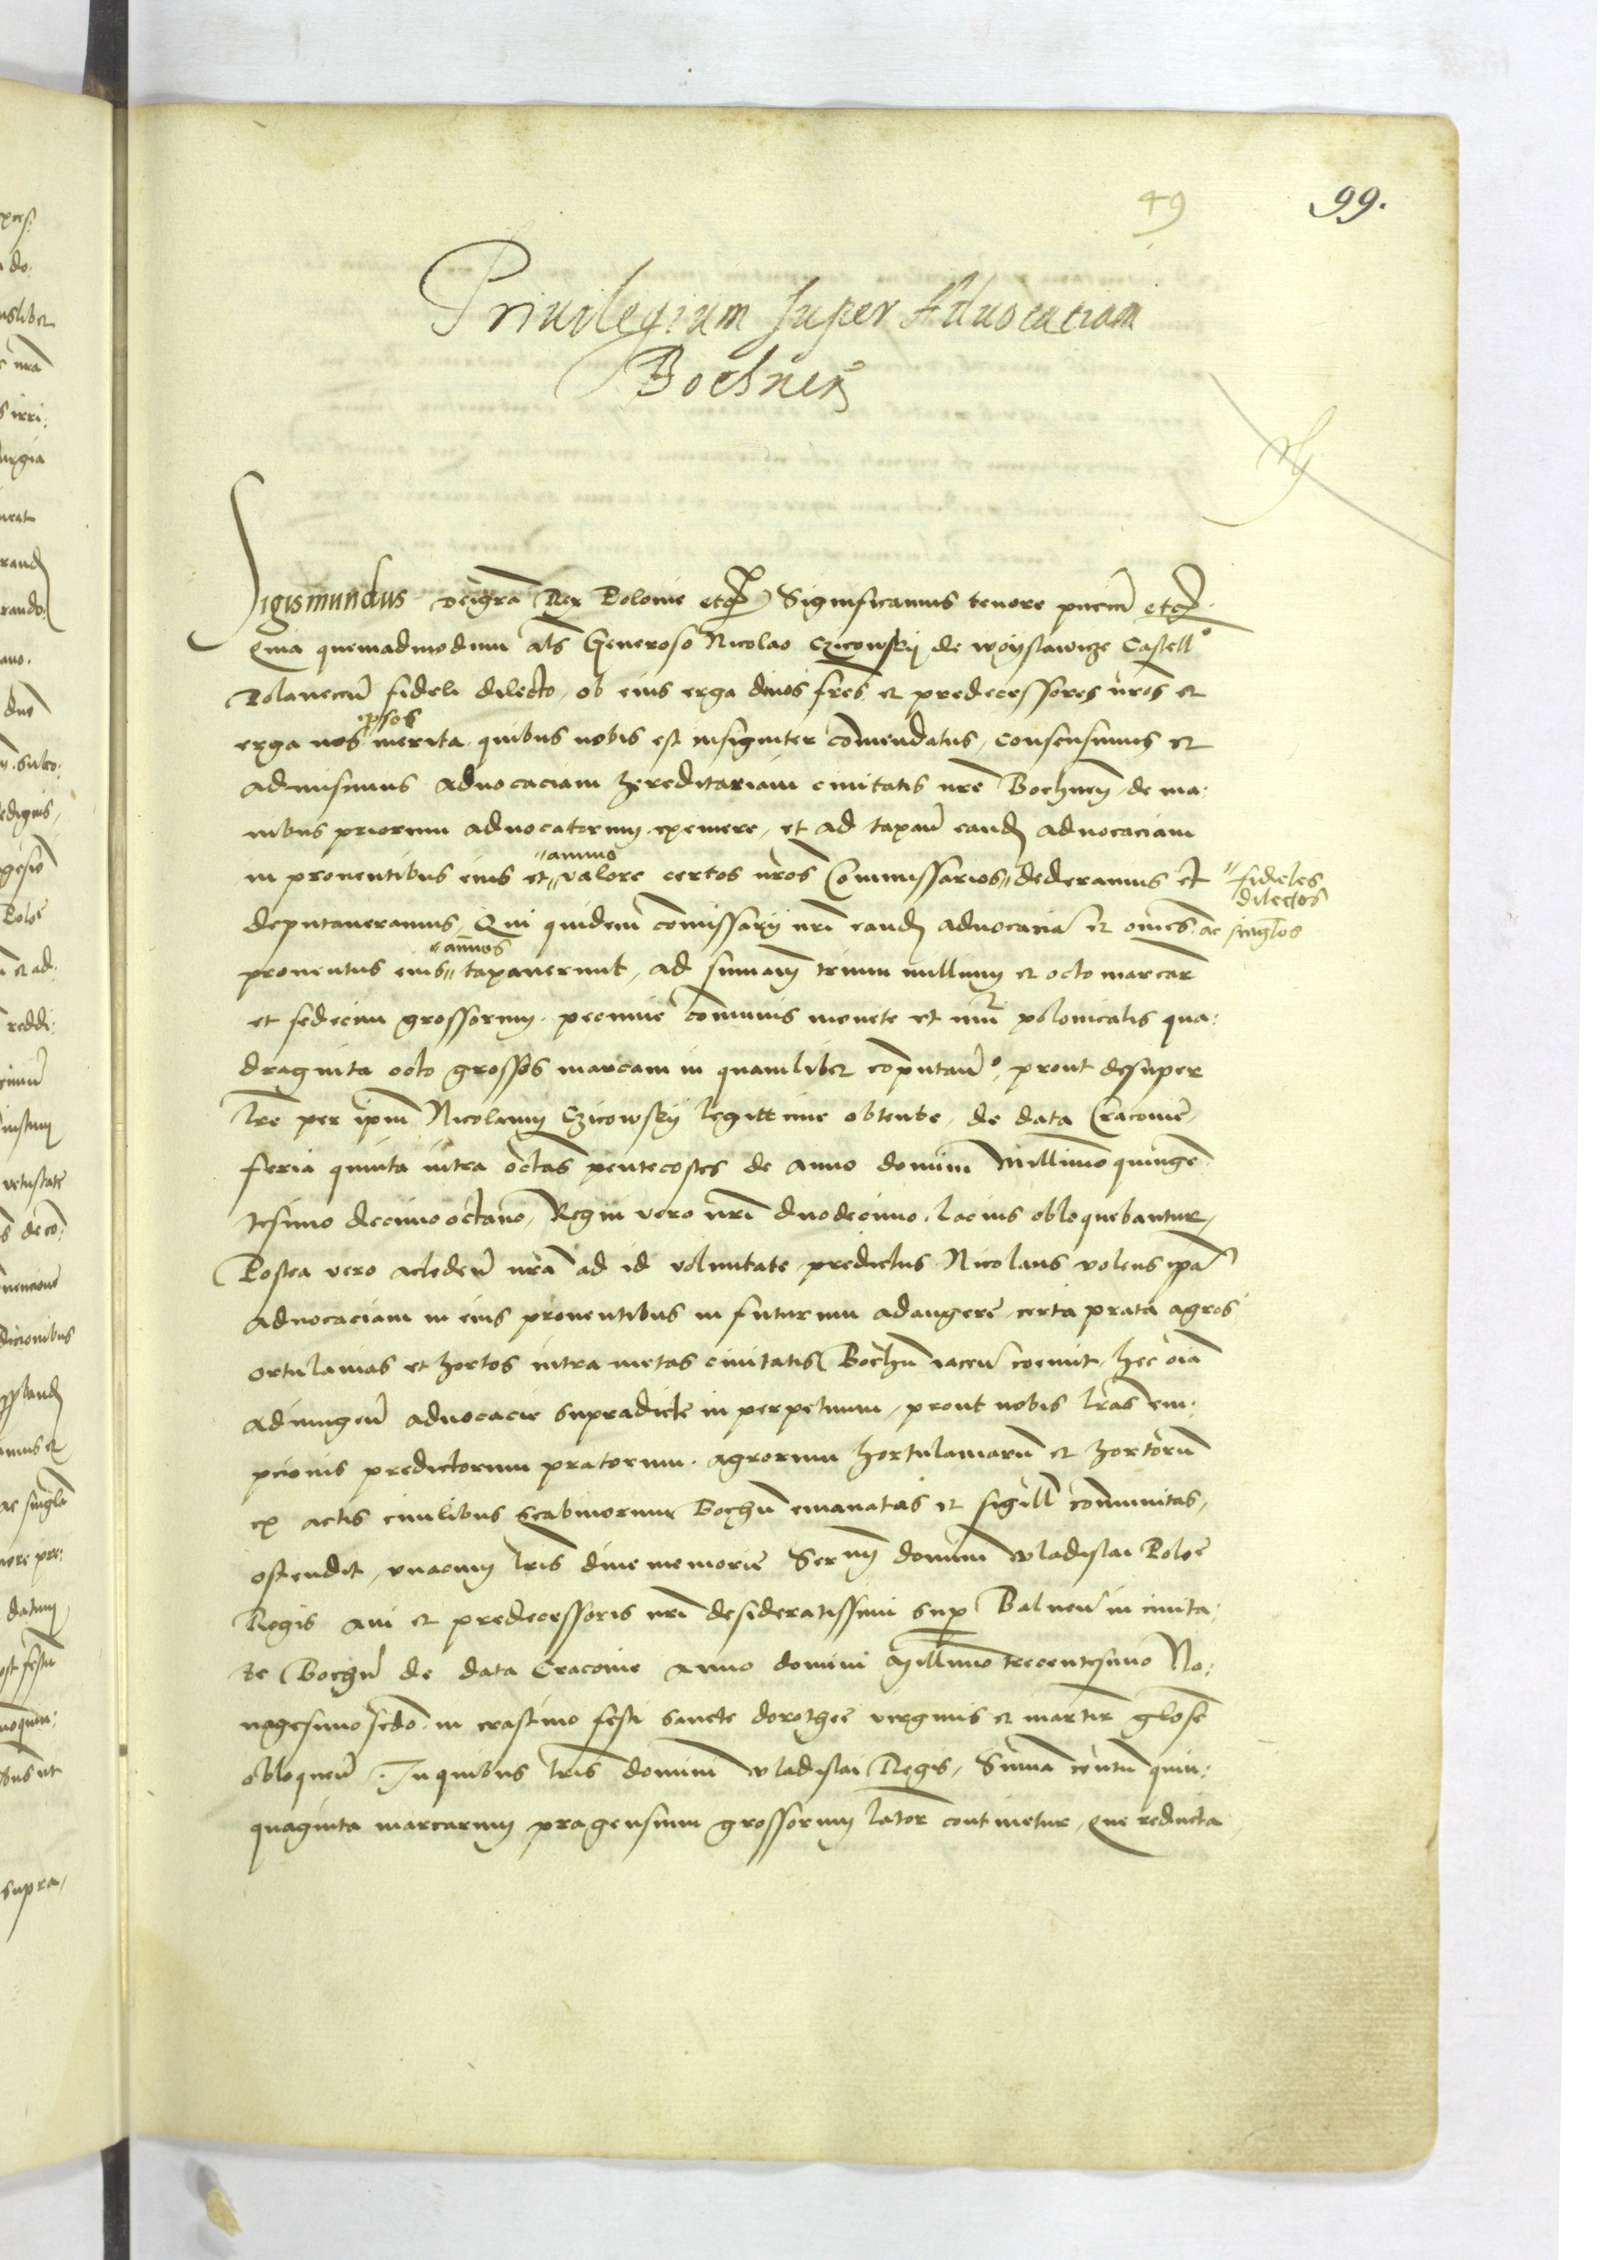 49
99.
Priuilegium super Aduocaciam
Bochnen̄
Sigismundus deigra Rex Polonie etc̄ Significamus tenore pn̄ciū etc̄
Quia quemadmodum als̄ Generoso Nicolao Czicowskij de woyslawicze Castell°
Polanecen̄ fideli dilecto, ob eius erga diuos frēs et predecessores nr̄os et
erga nos ipsos merita, quibus nobis est insigniter comendatus, consensimus et
admisimus aduocaciam hereditariam ciuitatis nr̄e Bochnen̄, de ma:
nibus priorum aduocatorum exemere, et ad taxan̄ eand̄ aduocaciam
in prouentibus eius et " annuo valore certos nr̄os Commissarios " dederamus et " fideles
dilectos
deputaueramus, Qui quidem comissarij nr̄i eand̄ aduocaciā et om̄es ac singlos
prouentus eius " annuos taxauerunt, ad summam trium millium et octo marcar̄
et sedecim grossorum pecunie comunis monete et nūi polonicalis qua:
draginta octo grossos marcam in quamlibet computan̄°, prout desuper
lr̄e per ipm̄ Nicolaum Czicowskij legittime obtente, de data Cracouie,
feria quinta intra octas̄ pentecostes de anno domini Millimo quingē
tesimo decimo octauo, Regni vero nr̄i duodecimo, lacius obloquebantur,
Postea vero acceden̄ nr̄a ad id voluntate, predictus Nicolaus volens ipā
aduocaciam in eius prouentibus in futurum adaugere, certa prata agros
ortulanias et hortos intra metas ciuitatis Bochn̄ iacen̄ coemit, hec oīa
adiungen̄ aduocacie supradicte in perpetuum, prout nobis lr̄as em:
pcionis predictorum pratorum, agrorum hortulaniarū et hortorū
ex actis ciuilibus scabinorum Bochn̄ emanatas et sigill̄ communitas,
ostendit, vnacum lr̄is diue memorie Sermj domini wladislai Poloē
Regis aui et predecessoris nr̄i desideratissimi sup̄ Balneū in ciuita:
te Bochn̄ de data Cracouie Anno domini Millimo Trecentesimo No:
nagesimo scdo, in crastino festi sancte dorothee virginis et martir̄ glose
obloquen̄ In quibus lr̄is domini wladislai Regis, Suma centū quin:
quaginta marcarum pragensium grossorum lator̄ continetur, que reducta